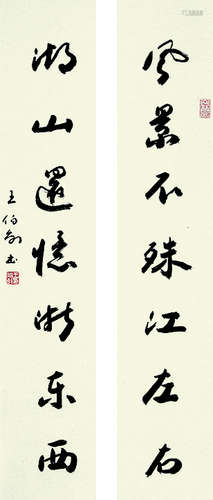 风景不殊江左右
湖山还忆浙东西
王伯敏书